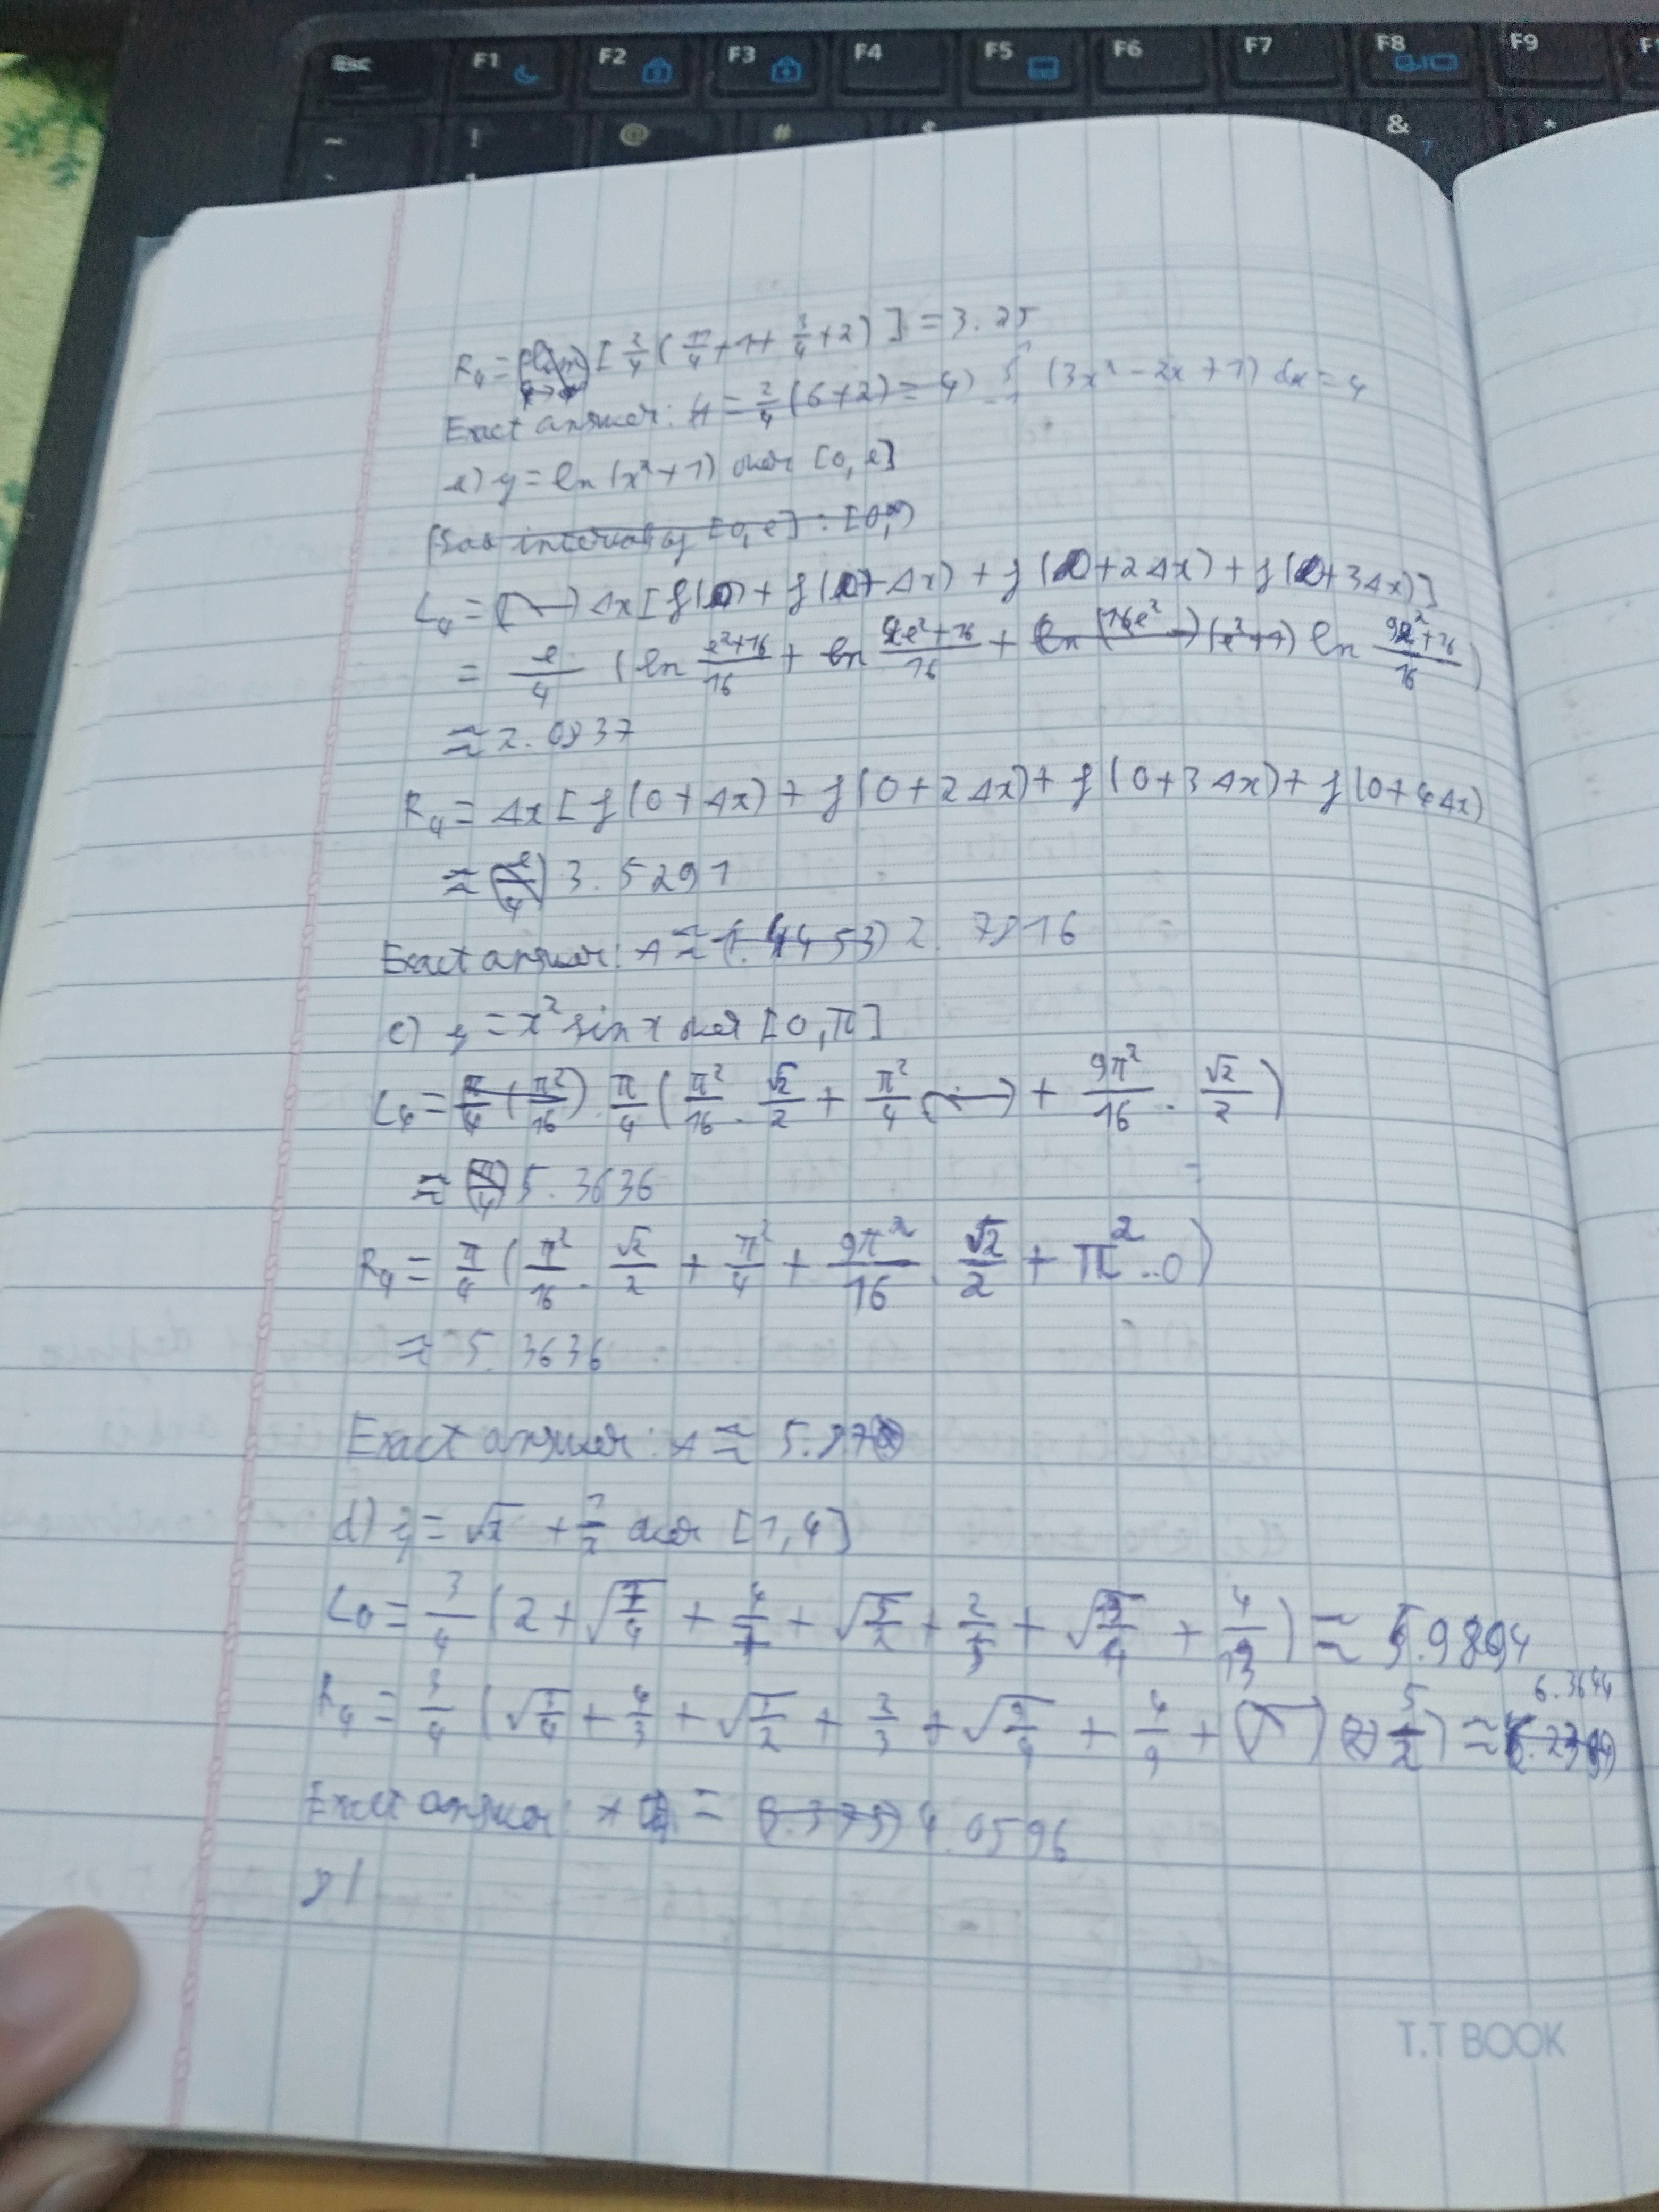 Esc F1 F2 F3 F4 F5 F6 F7 F8 F9
~ ! @ # $ & 7 *
R₄ = [2/4 (11/4 + 1 + 3/4 + 2)] = 3.25
Exact answer: A = 2/4 (6+2) = 4) ∫ (3x² - 2x + 1) dx = 4
y = ln (x²+1) over [0, e]
(Sub interval of [0, e] : [0,
L₄ = Δx [f(0) + f(0+Δx) + f(0+2Δx) + f(0+3Δx)]
= e/4 (ln (e²+16)/16 + ln (4e²+16)/16 + ln (9e²+16)/16)
≈ 2.0837
R₄ = Δx [f(0+Δx) + f(0+2Δx) + f(0+3Δx) + f(0+4Δx)
≈ (e/4) 3.5291
Exact answer: A ≈ (1.4453) 2.7816
c) y = x² sin x over [0, π]
L₄ = π/4 (π²/16) . π/4 (π²/16 . √2/2 + π²/4 + 9π²/16 . √2/2)
≈ (π/4) 5.3636
R₄ = π/4 (π²/16 . √2/2 + π²/4 + 9π²/16 . √2/2 + π² . 0)
≈ 5.3636
Exact answer: A ≈ 5.87
d) y = √x + 1/x over [1, 4]
L₀ = 3/4 (2 + √(7/4) + 4/7 + √(5/2) + 2/5 + √(13/4) + 4/13) ≈ 5.9894
R₄ = 3/4 (√(7/4) + 4/7 + √(5/2) + 2/5 + √(13/4) + 4/13 + 5/2) ≈ 6.3644
Exact answer: A = (3.375) 4.0596
T.T BOOK